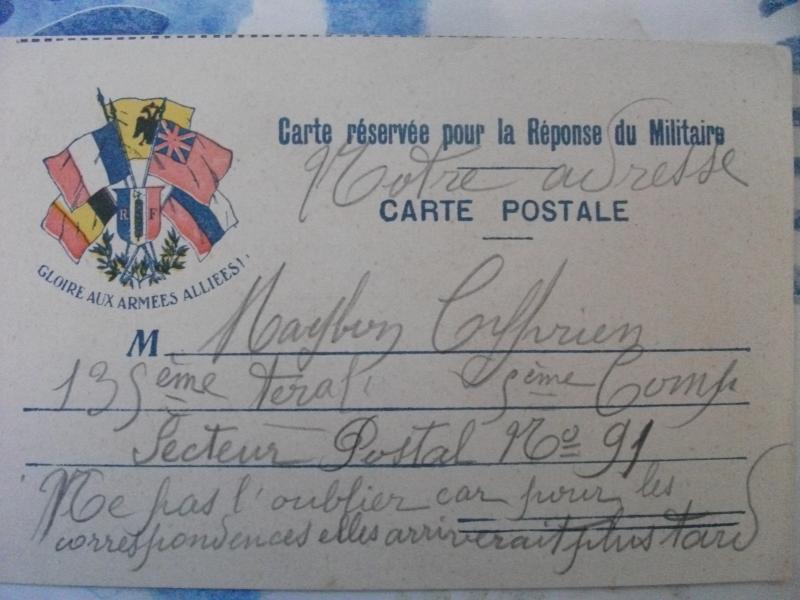 Carte réservée pour la Réponse du Militaire
Notre adresse
CARTE POSTALE
R F
GLOIRE AUX ARMEES ALLIEES!
M Maybon Cyprien
135ème teral 5ème Comp
Secteur Postal No 91
Ne pas l'oublier car pour les
correspondences elles arriverait plus tard